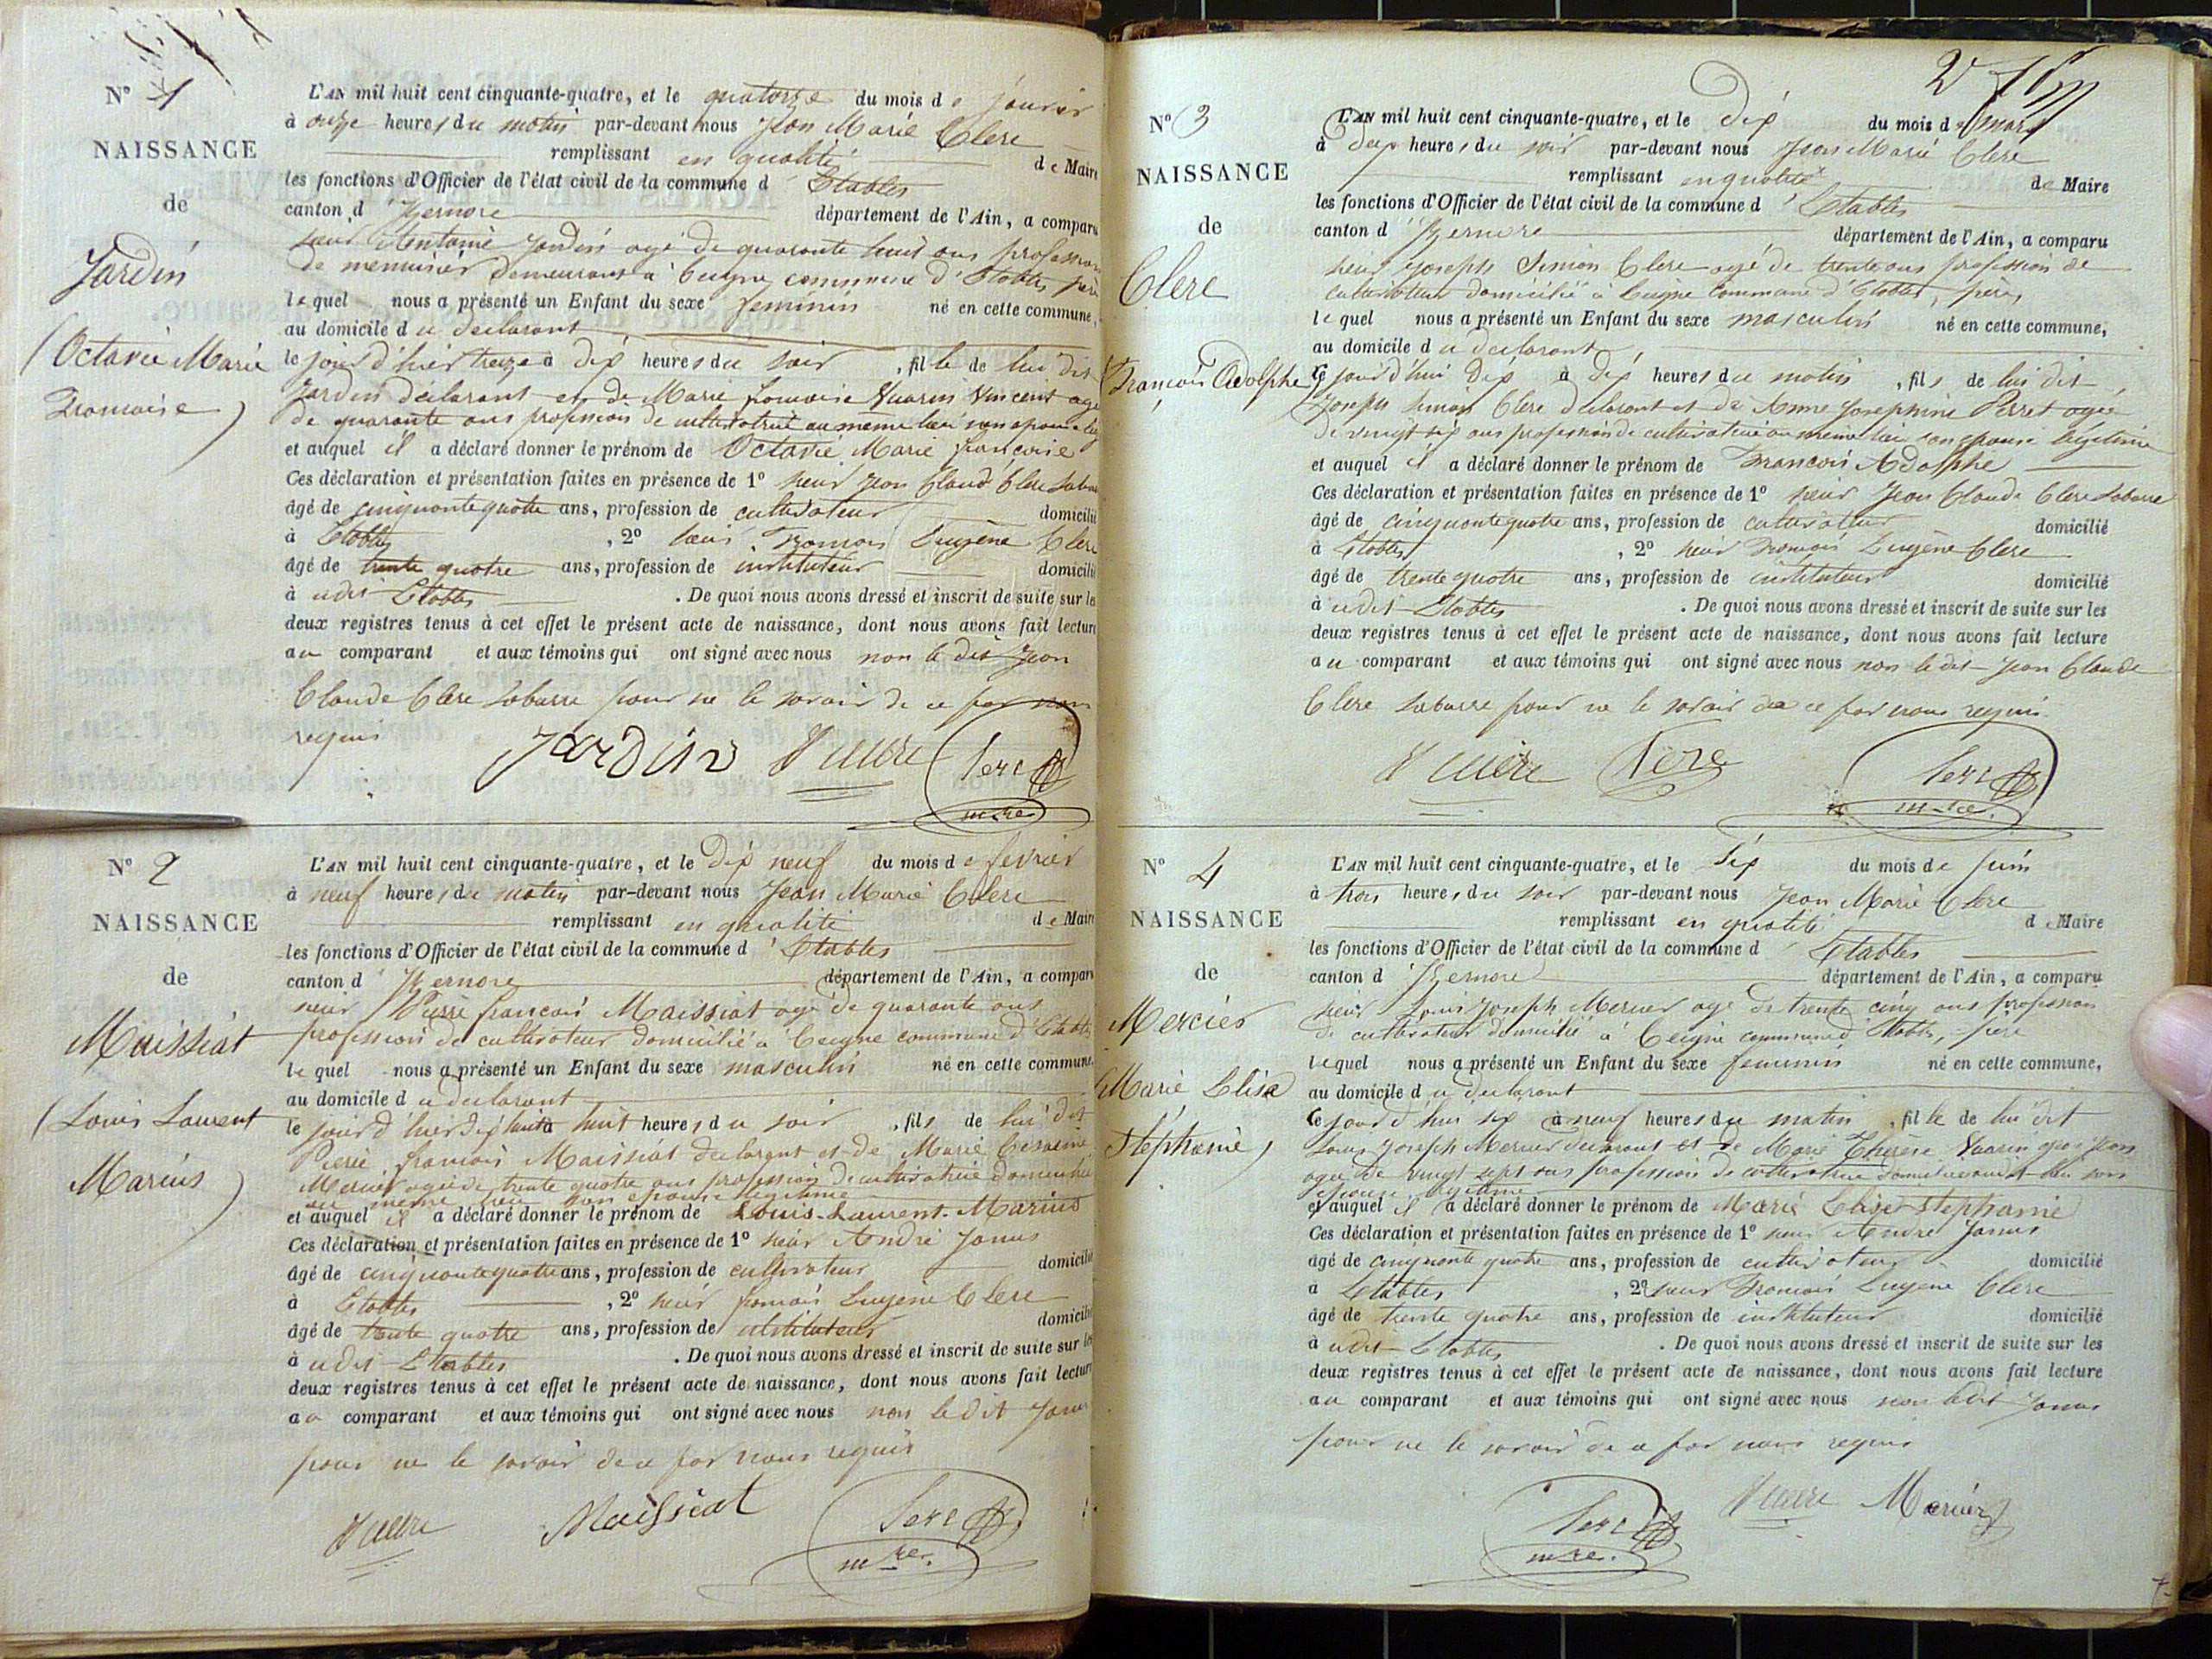 N° 1
NAISSANCE
de
Jardin
(Octavie Marie
Francoise)
L'AN mil huit cent cinquante-quatre, et le quatorze du mois de janvier
à onze heures du matin par-devant nous Jean Marie Clere
remplissant en qualité de Maire
les fonctions d'Officier de l'état civil de la commune d'Etables
canton d'Izernore département de l'Ain, a comparu
sieur Antoine Jardin agé de quarante huit ans profession
de menuisier demeurant à Ceigne commune d'Etables père
lequel nous a présenté un Enfant du sexe feminin né en cette commune,
au domicile du declarant
le jour d'hier treize à dix heures du soir, fille de lui dit
Jardin déclarant et de Marie francoise Vuarin Vincent agé
de quarante ans profession de cultivatrice au même lieu son epouse
et auquel il a déclaré donner le prénom de Octavie Marie francoise
Ces déclaration et présentation faites en présence de 1° sieur Jean Claude Clere Labarre
âgé de cinquante quatre ans, profession de cultivateur domicilié
à Etables, 2° sieur Francois Eugène Clere
âgé de trente quatre ans, profession de instituteur domicilié
à udit Etables. De quoi nous avons dressé et inscrit de suite sur les
deux registres tenus à cet effet le présent acte de naissance, dont nous avons fait lecture
au comparant et aux témoins qui ont signé avec nous non le dit Jean
Claude Clere Labarre pour ne le savoir de ce par nous
requis
Jardin Clerc
mre
N° 2
NAISSANCE
de
Maissiat
(Louis Laurent
Marius)
L'AN mil huit cent cinquante-quatre, et le dix neuf du mois de fevrier
à neuf heures du matin par-devant nous Jean Marie Clere
remplissant en qualité de Maire
les fonctions d'Officier de l'état civil de la commune d'Etables
canton d'Izernore département de l'Ain, a comparu
sieur Pierre francois Maissiat agé de quarante ans
profession de cultivateur domicilié à Ceigne commune d'Etables
lequel nous a présenté un Enfant du sexe masculin né en cette commune
au domicile du declarant
le jour d'hier dix huit à huit heures du soir, fils de lui dit
Pierre francois Maissiat declarant et de Marie
Mercier agée de trente quatre ans profession de cultivatrice domiciliée
au même lieu son epouse legitime
et auquel il a déclaré donner le prénom de Louis-Laurent-Marius
Ces déclaration et présentation faites en présence de 1° sieur André Janus
âgé de cinquante quatre ans, profession de cultivateur domicilié
à Etables, 2° sieur francois Eugène Clere
âgé de trente quatre ans, profession de instituteur domicilié
à udit Etables. De quoi nous avons dressé et inscrit de suite sur les
deux registres tenus à cet effet le présent acte de naissance, dont nous avons fait lecture
au comparant et aux témoins qui ont signé avec nous non ledit Janus
pour ne le savoir de ce par nous requis
Maissiat Clerc
mre.
2
N° 3
NAISSANCE
de
Clere
(Francois Adolphe)
L'AN mil huit cent cinquante-quatre, et le dix du mois de mars
à deux heures du soir par-devant nous Jean Marie Clere
remplissant en qualité de Maire
les fonctions d'Officier de l'état civil de la commune d'Etables
canton d'Izernore département de l'Ain, a comparu
sieur Joseph Simon Clere agé de trente ans profession de
cultivateur domicilié à Ceigne commune d'Etables, père,
lequel nous a présenté un Enfant du sexe masculin né en cette commune,
au domicile du declarant
Ce jour d'hui dix à dix heures du matin, fils de lui dit
Joseph Simon Clere declarant et de Anne Josephine Perret agée
de vingt six ans profession de cultivatrice au même lieu son epouse legitime
et auquel il a déclaré donner le prénom de Francois Adolphe
Ces déclaration et présentation faites en présence de 1° sieur Jean Claude Clere Labarre
âgé de cinquante quatre ans, profession de cultivateur domicilié
à Etables, 2° sieur Francois Eugène Clere
âgé de trente quatre ans, profession de instituteur domicilié
à udit Etables. De quoi nous avons dressé et inscrit de suite sur les
deux registres tenus à cet effet le présent acte de naissance, dont nous avons fait lecture
au comparant et aux témoins qui ont signé avec nous non ledit Jean Claude
Clere Labarre pour ne le savoir de ce par nous requis.
Clerc
mre.
N° 4
NAISSANCE
de
Mercier
(Marie Elisa
Stéphanie)
L'AN mil huit cent cinquante-quatre, et le six du mois de juin
à trois heures du soir par-devant nous Jean Marie Clere
remplissant en qualité de Maire
les fonctions d'Officier de l'état civil de la commune d'Etables
canton d'Izernore département de l'Ain, a comparu
sieur Louis Joseph Mercier agé de trente cinq ans profession
de cultivateur domicilié à Ceigne commune d'Etables, père
lequel nous a présenté un Enfant du sexe feminin né en cette commune,
au domicile du declarant
Ce jour d'hui six à neuf heures du matin, fille de lui dit
Louis Joseph Mercier declarant et de Marie Thérèse Vuarin
agée de vingt sept ans profession de cultivatrice
epouse legitime
et auquel il a déclaré donner le prénom de Marie Elise Stephanie
Ces déclaration et présentation faites en présence de 1° sieur André Janus
âgé de cinquante quatre ans, profession de cultivateur domicilié
à Etables, 2° sieur Francois Eugène Clere
âgé de trente quatre ans, profession de instituteur domicilié
à udit Etables. De quoi nous avons dressé et inscrit de suite sur les
deux registres tenus à cet effet le présent acte de naissance, dont nous avons fait lecture
au comparant et aux témoins qui ont signé avec nous non ledit Janus
pour ne le savoir de ce par nous requis
Clerc Mercier
mre.